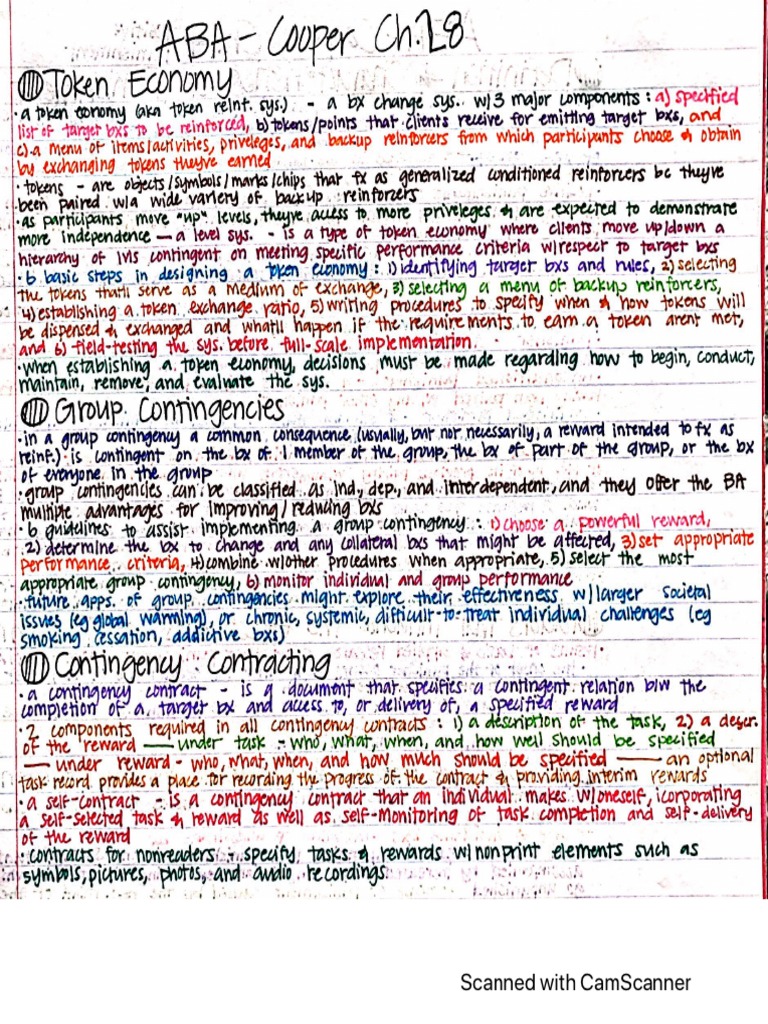 ABA - Cooper Ch. 28
Token Economy
· a token economy (aka token reinf. sys.) - a bx change sys. w/ 3 major components : a) specified
list of target bxs to be reinforced, b) tokens/points that clients receive for emitting target bxs, and
c) a menu of items/activities, priveleges, and backup reinforcers from which participants choose & obtain
by exchanging tokens theyve earned
· tokens - are objects/symbols/marks/chips that fx as generalized conditioned reinforcers bc theyve
been paired w/a wide variery of backup reinforcers
· as participants move "up" levels, theyre acess to more priveleges & are expected to demonstrate
more independence — a level sys. - is a type of token economy where clients move up/down a
hierarchy of lvls contingent on meeting specific performance criteria w/respect to target bxs
· 6 basic steps in designing a token economy : 1) identifying target bxs and rules, 2) selecting
the tokens thatll serve as a medium of exchange, 3) selecting a menu of backup reinforcers,
4) establishing a token exchange ratio, 5) writing procedures to specify when & how tokens will
be dispensed & exchanged and whatll happen if the requirements to earn a token arent met,
and 6) field-testing the sys. before full-scale implementation.
· when establishing a token economy, decisions must be made regarding how to begin, conduct,
maintain, remove, and evaluate the sys.
Group Contingencies
· in a group contingency a common consequence (usually, but not necessarily, a reward intended to fx as
reinf.) is contingent on the bx of 1 member of the group, the bx of part of the group, or the bx
of everyone in the group
· group contingencies can be classified as ind., dep., and interdependent, and they offer the BA
multiple advantages for improving/reducing bxs
· 6 guidelines to assist implementing a group contingency : 1) choose a powerful reward,
2) determine the bx to change and any collateral bxs that might be affected, 3) set appropriate
performance criteria, 4) combine w/other procedures when appropriate, 5) select the most
appropriate group contingency, 6) monitor individual and group performance
· future apps. of group contingencies might explore their effectiveness w/larger societal
issues (eg global warming), or chronic, systemic, difficult-to-treat individual challenges (eg
smoking cessation, addictive bxs)
Contingency Contracting
· a contingency contract - is a document that specifies a contingent relation b/w the
completion of a target bx and access to, or delivery of, a specified reward
· 2 components required in all contingency contracts : 1) a description of the task, 2) a descr.
of the reward — under task - who, what, when, and how well should be specified
— under reward - who, what, when, and how much should be specified — an optional
task record provides a place for recording the progress of the contract & providing interim rewards
· a self-contract - is a contingency contract that an individual makes w/oneself, icorporating
a self-selected task & reward as well as self-monitoring of task completion and self-delivery
of the reward
· contracts for nonreaders - specify tasks & rewards w/nonprint elements such as
symbols, pictures, photos, and audio recordings
Scanned with CamScanner